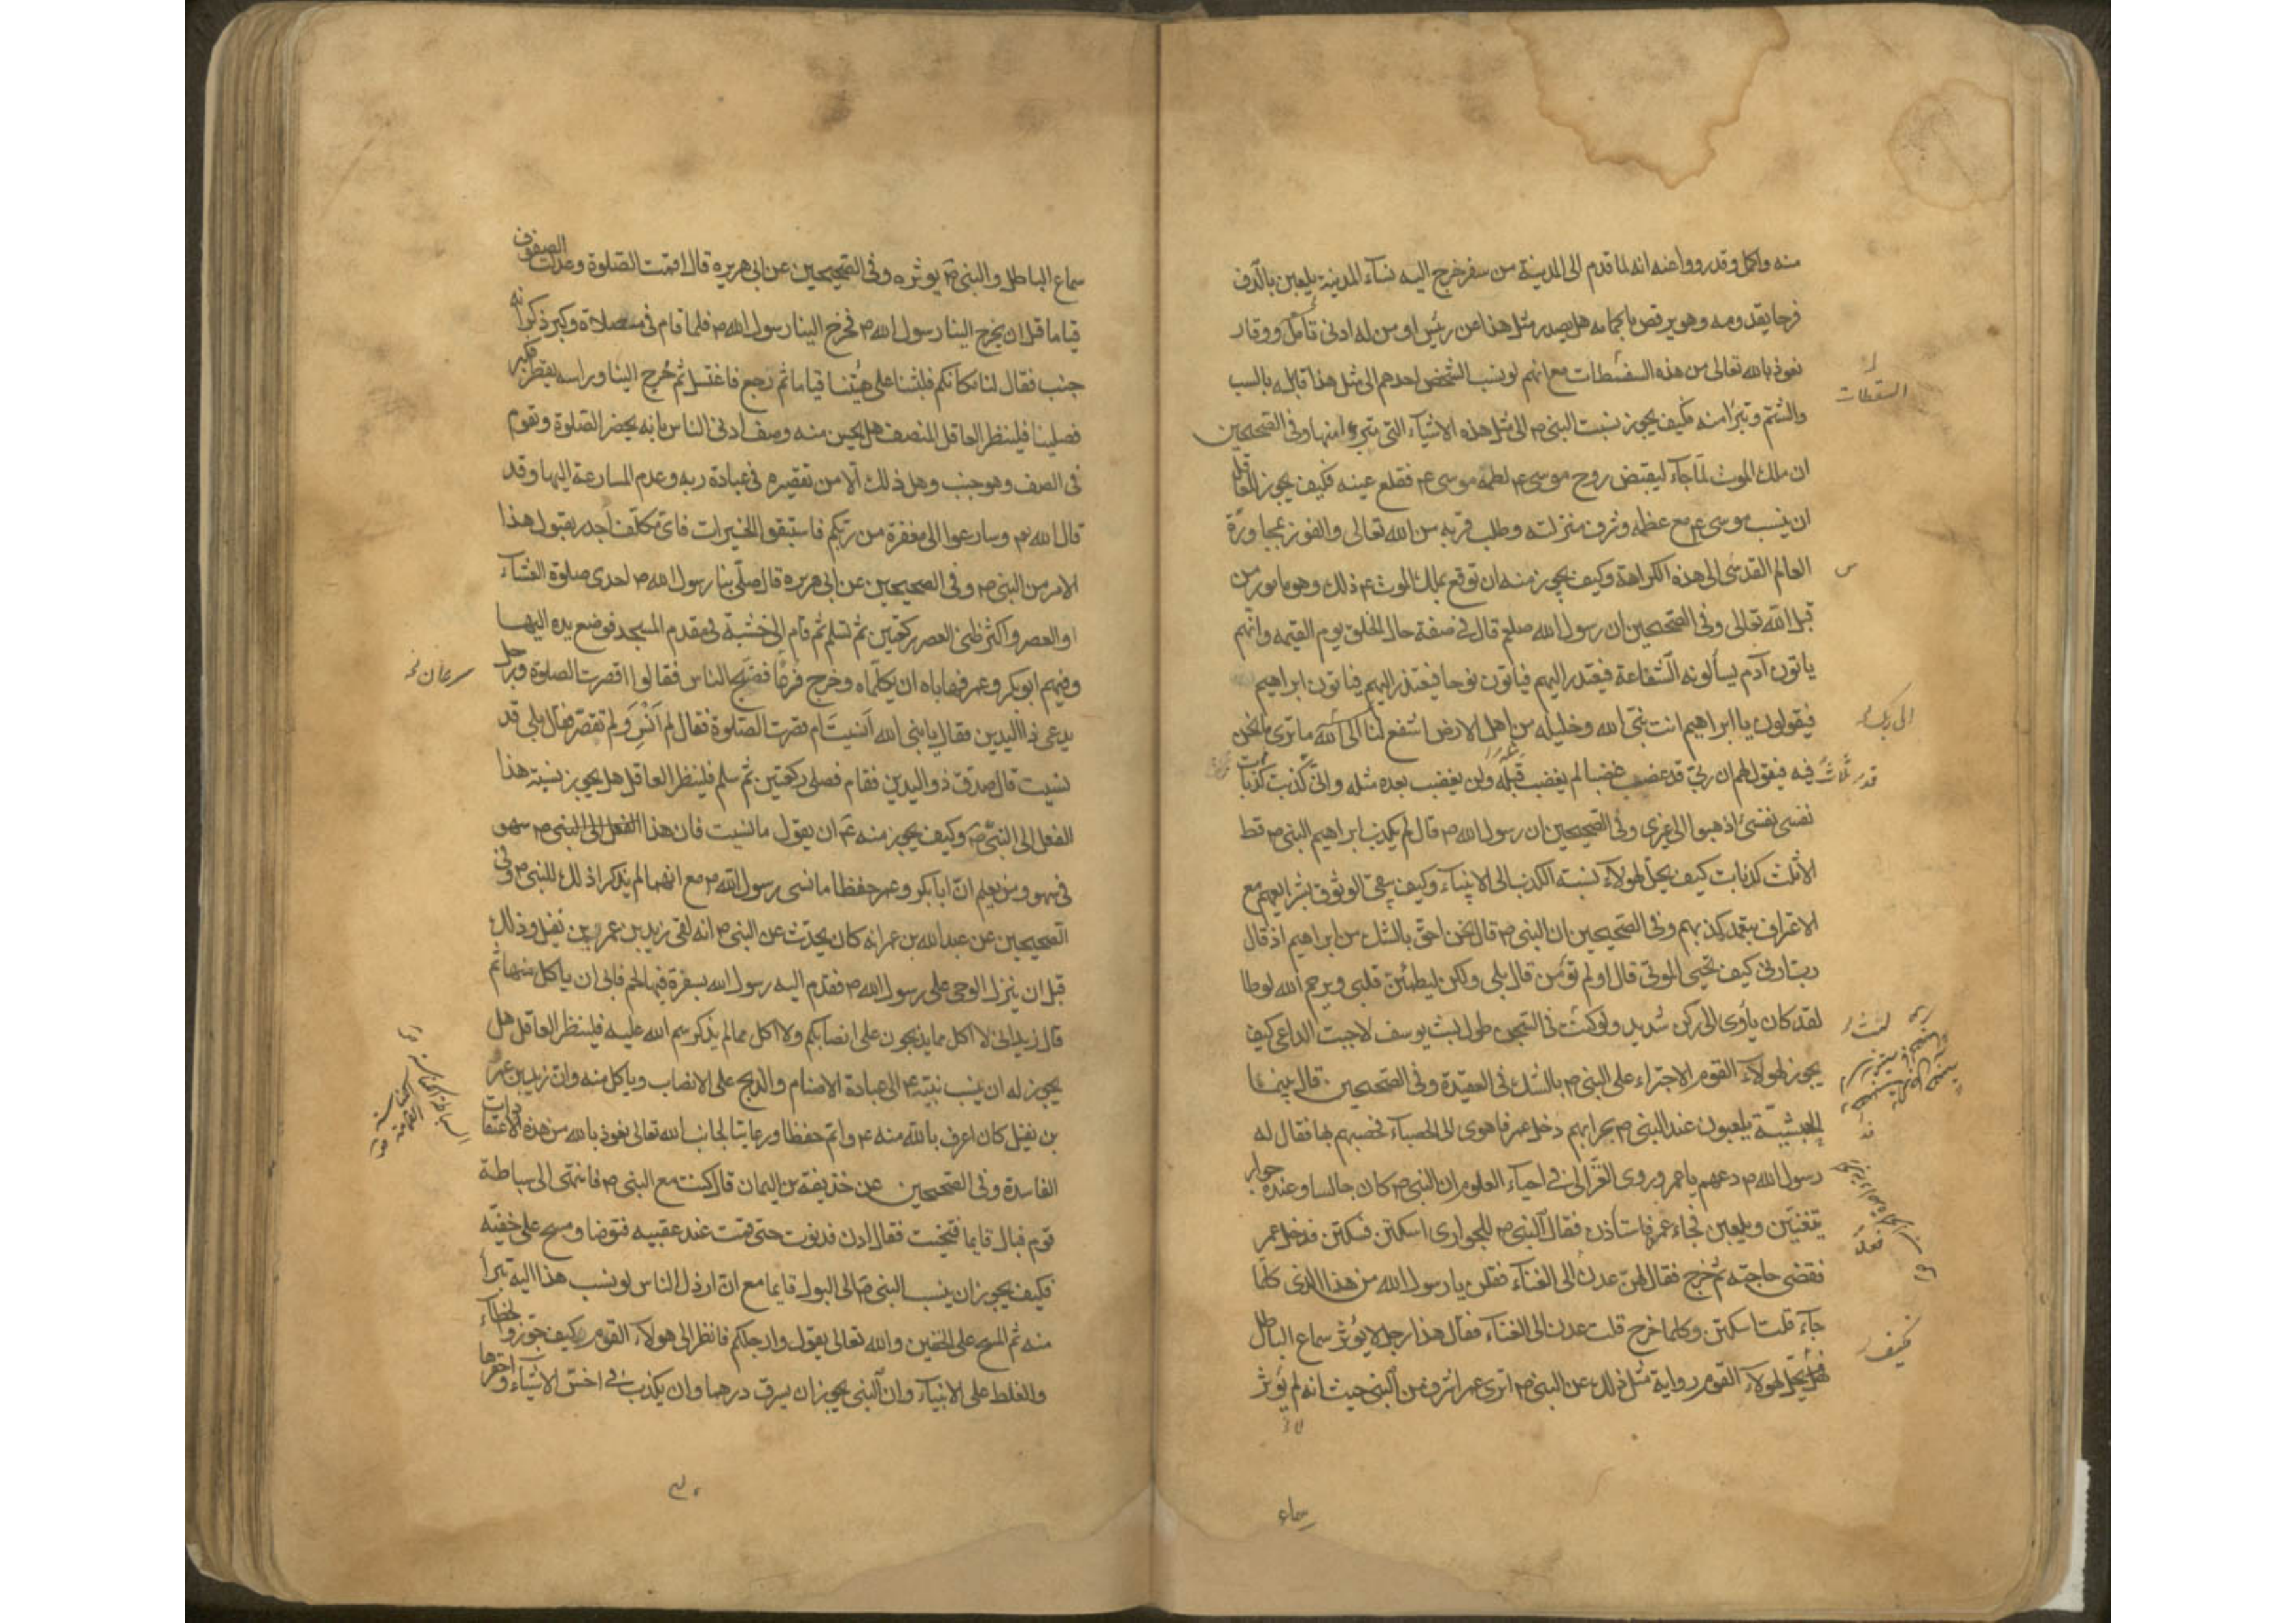 منه واكمل وقد رووا عنه انه لما قدم الى المدينة من سفر خرج اليه نساء المدينة يلعبن بالدف
فرحا بقدومه وهو يرقص باكمامه هل يصدر مثل هذا عن رئيس او من له ادنى تأمل ووقار
نعوذ بالله تعالى من هذه السفسطات مع انهم لو نسب الشخص احدهم الى مثل هذا قابله بالسب
السقطات
والشتم وتبرأ منه فكيف يجوز نسبت النبي ص الى مثل هذه الاشياء التي يتبرء منها وفى الصحيحين
ان ملك الموت لما جاء ليقبض روح موسى ع لطمه موسى ع فقلع عينه فكيف يجوز لعاقل
ان ينسب موسى ع مع عظمه وشرف منزلته وطلب قربه من الله تعالى والفوز بمجاورة
العالم القدسى الى هذه الكراهة وكيف يجوز منه ان توقع بملك الموت ع ذلك وهو مامور من
قبل الله تعالى وفى الصحيحين ان رسول الله صلعم قال فى صفة حال الخلق يوم القيمه وانهم
ياتون آدم يسألونه الشفاعة فيعتذر اليهم فيأتون نوحا فيعتذر اليهم فيأتون ابراهيم
فيقولون يا ابراهيم انت نبى الله وخليله من اهل الارض اشفع لنا الى الله ما ترى ما نحن
الى ربك
فيه فيقول لهم ان ربى قد غضب غضبا لم يغضب قبله ولن يغضب بعده مثله وانى كذبت كذبات
قد ثلاث
نفسى نفسى اذهبوا الى غيرى وفى الصحيحين ان رسول الله ص قال لم يكذب ابراهيم النبى ص قط
الا ثلث كذبات كيف يحل لهولاء نسبة الكذب الى الانبياء وكيف يبقى الوثوق بشرايعهم مع
الاعتراف بتعمد كذبهم وفى الصحيحين ان النبى ص قال نحن احق بالشك من ابراهيم اذ قال
رب ارنى كيف تحيى الموتى قال اولم تؤمن قال بلى ولكن ليطمئن قلبى ويرحم الله لوطا
لقد كان يأوى الى ركن شديد ولو كنت فى السجن طول لبث يوسف لاجبت الداعى كيف
لبثت
يجوز لهولاء القوم الاجتراء على النبى ص بالشك فى العقيدة وفى الصحيحين قال بينما
الحبشية يلعبون عند النبى ص بحرابهم دخل عمر فاهوى الى الحصباء فحصبهم بها فقال له
رسول الله ص دعهم يا عمر وروى الغزالى فى احياء العلوم ان النبى ص كان جالسا وعنده جوار
يتغنين ويلعبن فجاء عمر فاستأذن فقال النبى ص للجوارى اسكتن فسكتن فدخل عمر
فقضى حاجته ثم خرج فقال لهن عدن الى الغناء فقلن يا رسول الله من هذا الذى كلما
جاء قلت اسكتن وكلما خرج قلت عدن الى الغناء فقال هذا رجل لا يؤثر سماع الباطل
فكيف
فهل يحل لهولاء القوم رواية مثل ذلك عن النبى ص اترى عمر اشرف من النبى حيث انه لم يؤثر
سماع
سماع الباطل والنبى ص يوثره وفى الصحيحين عن ابى هريره قال اقيمت الصلوة وعدلت الصفوف
قياما قبل ان يخرج الينا رسول الله ص فخرج الينا رسول الله ص فلما قام فى مصلاه وكبر ذكر انه
جنب فقال لنا مكانكم فلبثنا على هيئتنا قياما ثم رجع فاغتسل ثم خرج الينا وراسه يقطر فكبر
فصلينا فلينظر العاقل المنصف هل يحسن منه وصف ادنى الناس بانه يحضر الصلوة ويقوم
فى الصف وهو جنب وهل ذلك الا من تقصيره فى عبادة ربه وعدم المسارعة اليها وقد
قال الله تع وسارعوا الى مغفرة من ربكم فاستبقوا الخيرات فاى مكلف اجدر بقبول هذا
الامر من النبى ص وفى الصحيحين عن ابى هريره قال صلى بنا رسول الله ص احدى صلوة العشاء
او العصر واكثر ظنى العصر ركعتين ثم سلم ثم قام الى خشبة فى مقدم المسجد فوضع يده اليها
وفيهم ابو بكر وعمر فهاباه ان يكلماه وخرج فرعا فضج الناس فقالوا اقصرت الصلوة ورجل
سرعان
يدعى ذا اليدين فقال يا نبى الله أنسيت ام قصرت الصلوة فقال لم انس ولم تقصر فقال بلى قد
نسيت قال صدق ذو اليدين فقام فصلى ركعتين ثم سلم فلينظر العاقل هل يجوز نسبة هذا
الفعل الى النبى ص وكيف يجوز منه ع ان يقول ما نسيت فان هذا الفعل الى النبى ص سهو
فى سهو ومن يعلم ان ابا بكر وعمر حفظا ما نسى رسول الله ص مع انهما لم يذكرا ذلك للنبى ص وفى
الصحيحين عن عبد الله بن عمر انه كان يحدث عن النبى ص انه لقى زيد بن عمرو بن نفيل وذلك
قبل ان ينزل الوحى على رسول الله ص فقدم اليه رسول الله بسفرة فيها لحم فابى ان ياكل منها ثم
قال زيد انى لا اكل مما يذبحون على انصابكم ولا اكل مما لم يذكر اسم الله عليه فلينظر العاقل هل
يجوز له ان ينسب نبيه ع الى عبادة الاصنام والذبح على الانصاب وياكل منه وان زيد بن عمر
بن نفيل كان اعرف بالله منه ع واتم حفظا ورعايتا لجانب الله تعالى نعوذ بالله من هذه الاعتقادات
الفاسدة وفى الصحيحين عن حذيفة بن اليمان قال كنت مع النبى ص فانتهى الى سباطة
قوم فبال قايما فتنحيت فقال ادن فدنوت حتى قمت عند عقبيه فتوضا ومسح على خفيه
فكيف يجوز ان ينسب النبى ص الى البول قايما مع ان ارذل الناس لو نسب هذا اليه تبرأ
منه ثم المسح على الخفين والله تعالى يقول وارجلكم فانظر الى هولاء القوم كيف جوزوا الخطاء
والغلط على الانبياء وان النبى يجوز ان يسرق درهما وان يكذب فى اخس الاشياء واحقرها